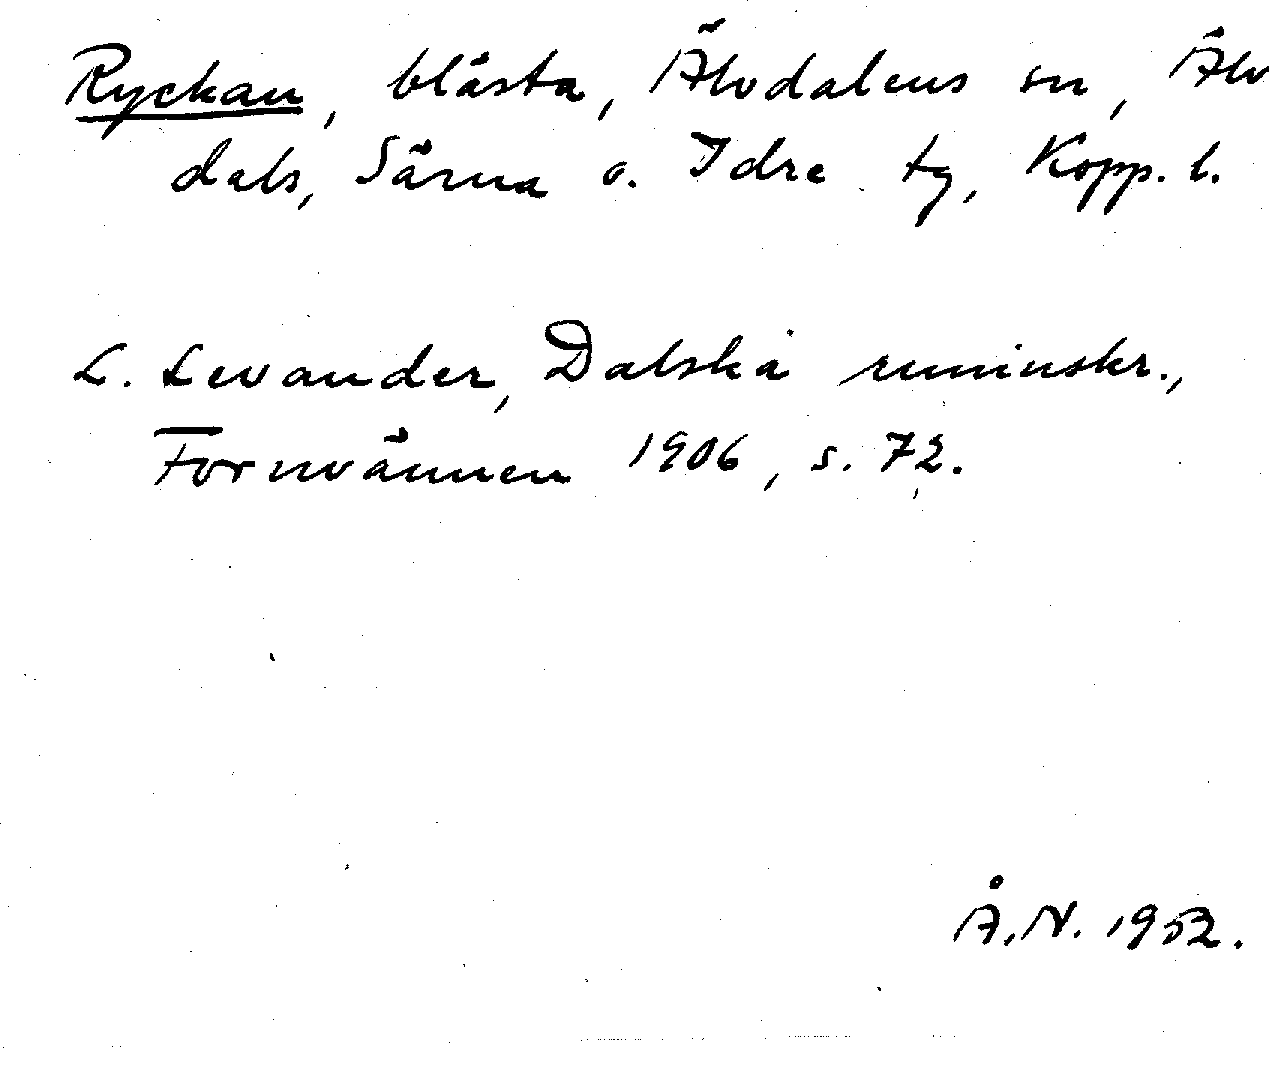 Ryckan, blåsta, Älvdalens sn, Älv
dals, Särna o. Idre tg, Kopp. l.
L. Levander, Dalska runinskr.,
Fornvännen 1906, s. 72.
Å.N. 1952.